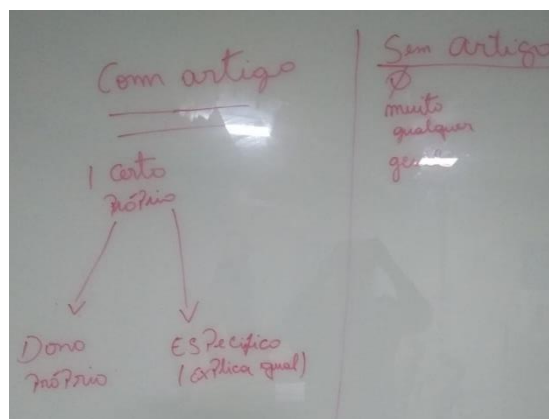 Com artigo
1 Certo
Próprio
Dono
Próprio
ESPecífico
(explica qual)
Sem artigo
Ø
muito
qualquer